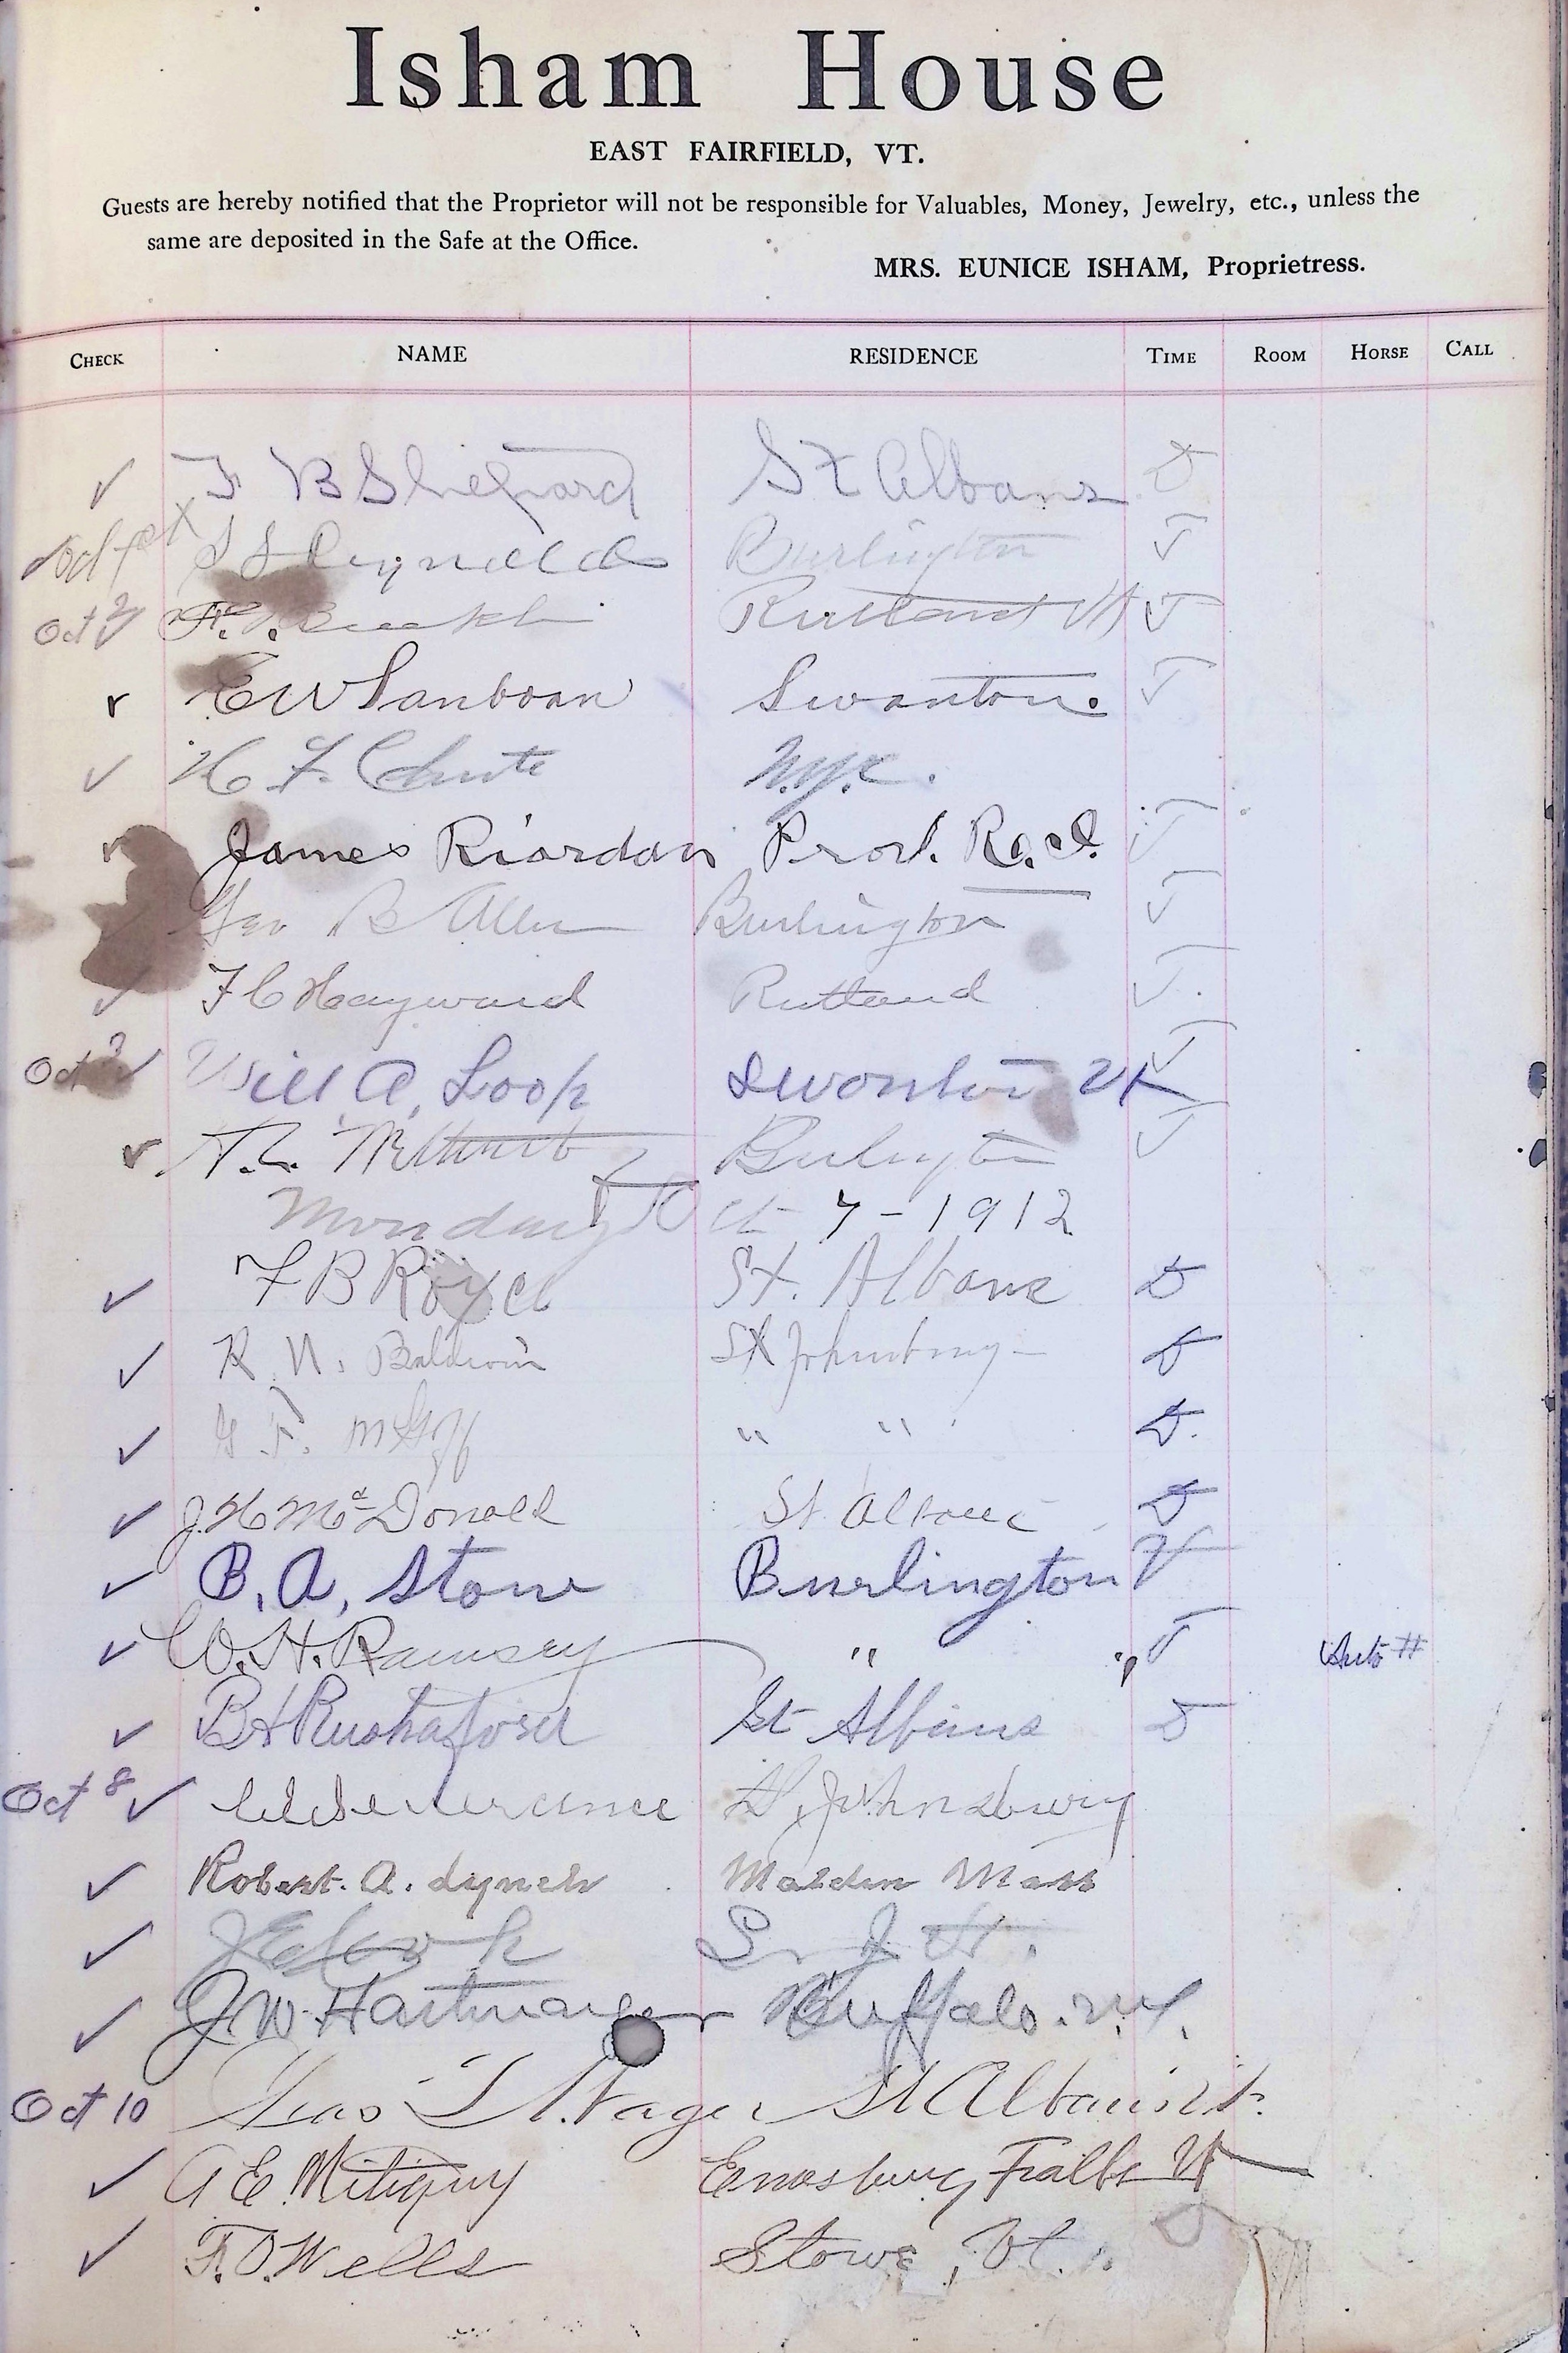 Isham House
EAST FAIRFIELD, VT.
Guests are hereby notified that the Proprietor will not be responsible for Valuables, Money, Jewelry, etc., unless the
same are deposited in the Safe at the Office.
MRS. EUNICE ISHAM, Proprietress.
CHECK NAME RESIDENCE TIME ROOM HORSE CALL
✓ F B Shepard St Albans D
Reynolds Burlington T
Oct 2 ✓ F. Rutland Vt T
✓ E W Sanboan Swanton. T
✓ H F. Chute N.Y.C.
✓ James Riordan Prov. R.I. T
✓ Geo B Allen Burlington T
✓ F C Hayward Rutland T
Oct 3 ✓ Will A. Loop Swanton Vt T
✓ Burlington T
Monday Oct 7 - 1912
✓ F B Royce St. Albans D
✓ R. N. Baldwin St Johnsbury - D
✓ " " D.
✓ J. H. McDonald St Albans D
✓ B. A. Stone Burlington
✓ W. H. Ramsey " " T Auto #
✓ B H Rushaford St Albans D
Oct 8 ✓ St Johnsbury
✓ Robert. A. Lynch Malden Mass
✓ St J Vt.
✓ J. W. Hartman Buffalo. N.Y.
Oct 10 St Albans Vt.
✓ A E Mitiguy Enosburg Falls Vt
✓ F. O. Wells Stowe, Vt.